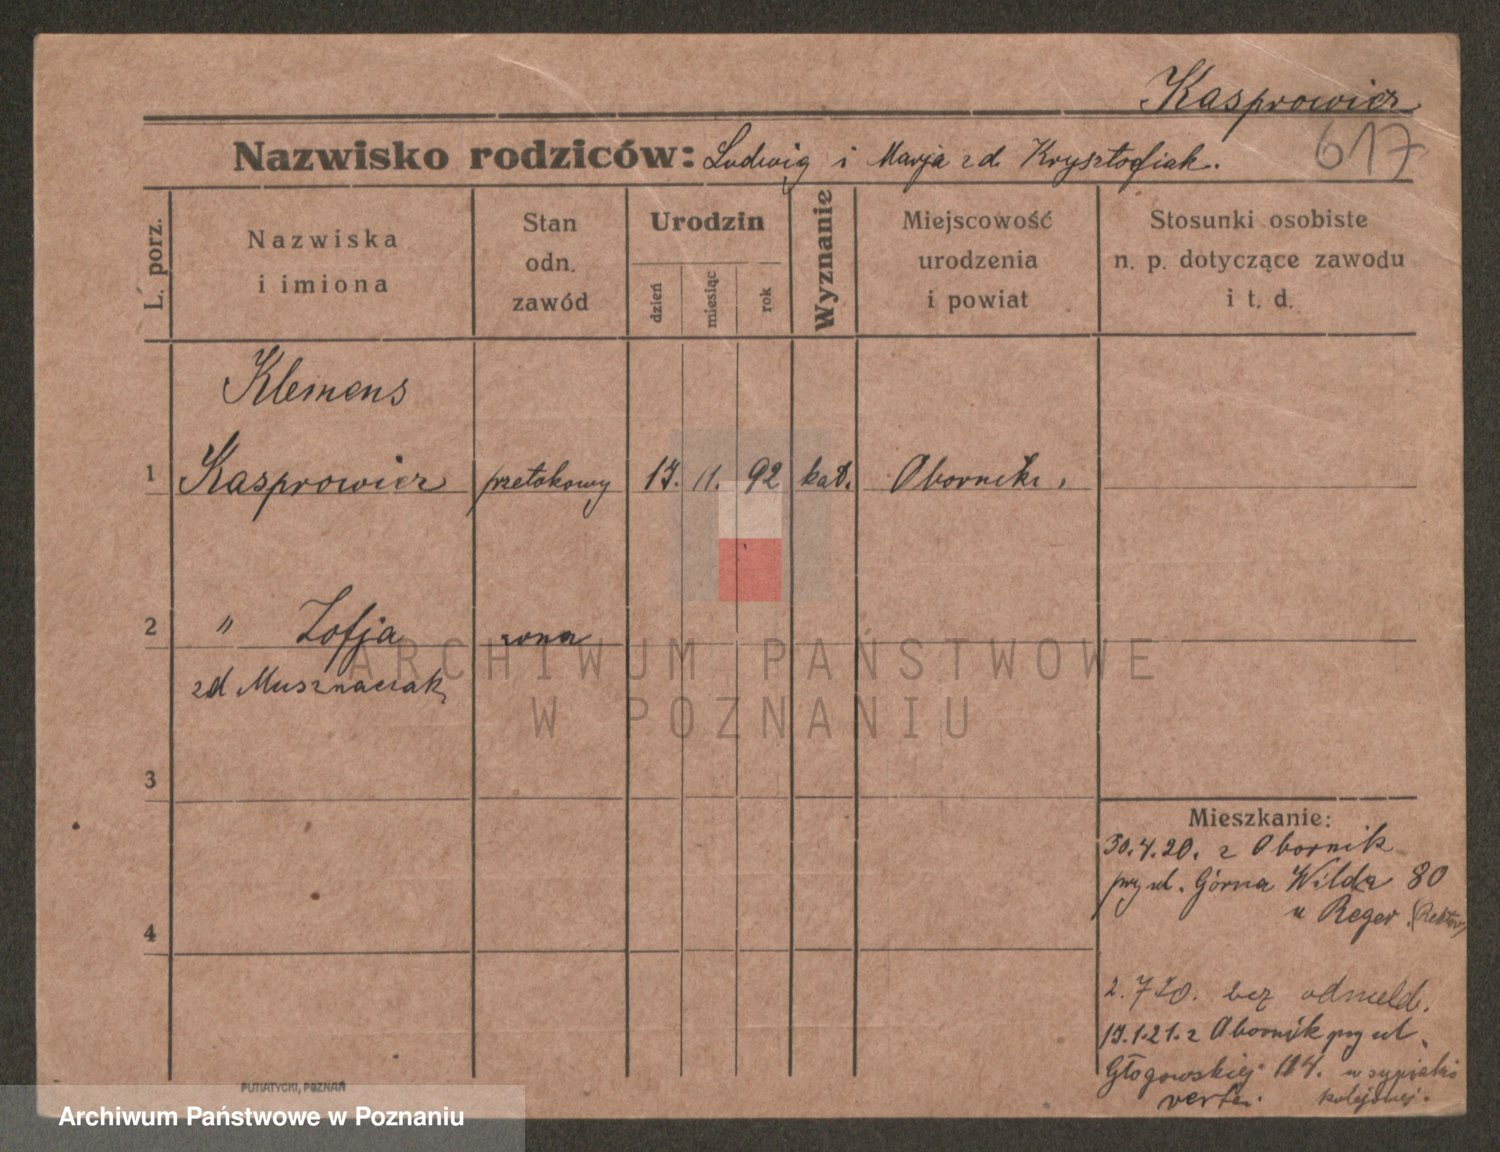 Kasprowicz
617
Nazwisko rodziców: Ludwig i Marja zd. Krysztofiak.
L. porz.
Nazwiska
i imiona
Stan
odn.
zawód
Urodzin
dzień
miesiąc
rok
Wyznanie
Miejscowość
urodzenia
i powiat
Stosunki osobiste
n. p. dotyczące zawodu
i t. d.
Klemens
1 Kasprowicz przetokowy 17. 11. 92 kat. Oborniki.
2 " Zofja żona
zd Musznaciak
ARCHIWUM PAŃSTWOWE
W POZNANIU
3
4
Mieszkanie:
30.4.20. z Obornik
przy ul. Górna Wilda 80
u Reger (Rektor)
2.7.20. bez odmeld.
17.1.21. z Obornik przy ul.
Głogowskiej 114. w
kolejowej.
PUTIATYCKI, POZNAŃ
Archiwum Państwowe w Poznaniu